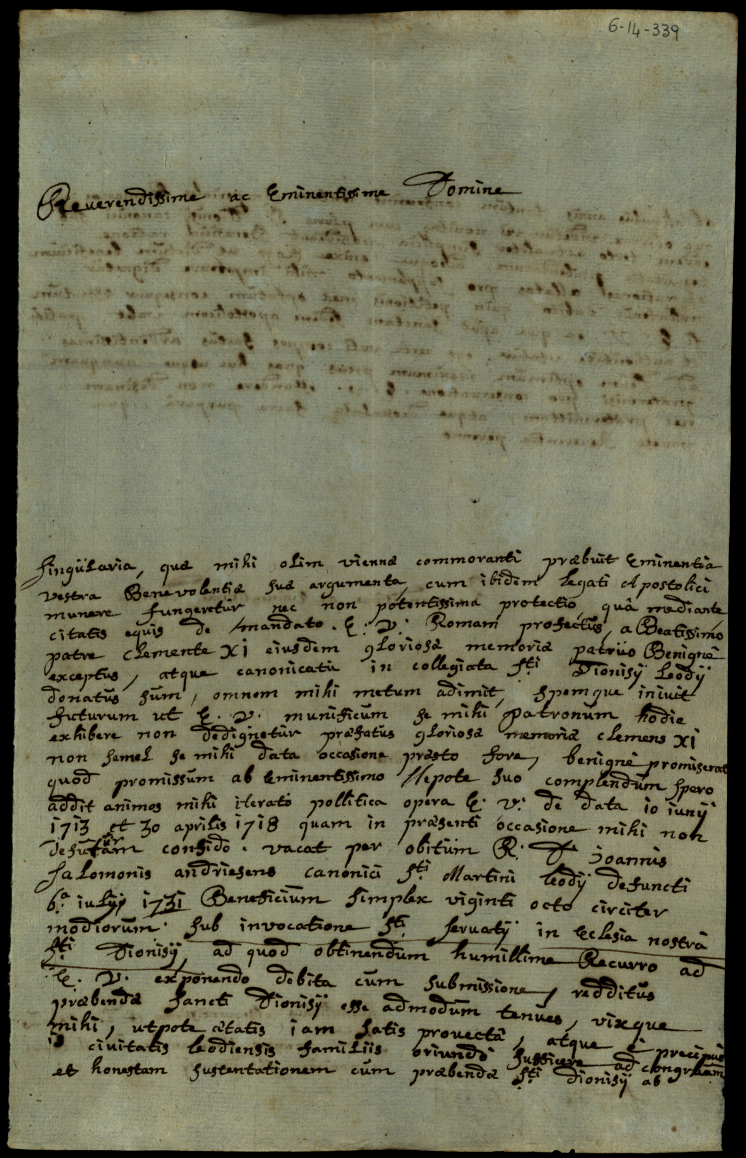 6-14-339
Reverendissime ac Eminentissime Domine
singularia, quæ mihi olim viennæ commoranti præbuit Eminentia
vestra Benevolentiæ suæ argumenta, cum ibidem legati Apostolici
munere fungeretur nec non potentissima protectio, quâ mediante,
citatis equis de mandato E. V. Romam profectus, a Beatissimo
patre Clemente XI eiusdem gloriosæ memoriæ patruo Benignè
exceptus, atque canonicatu in collegiata Sti Dionisÿ Leodÿ
donatus sum, omnem mihi metum adimit, spemque iniuit
futurum ut E. V. munificum se mihi patronum hodie
exhibere non dedignetur præfatus gloriosæ memoriæ Clemens XI
non semel se mihi data occasione præsto fore, benignè promiserat
quod promissum ab Eminentissimo Nepote suo complendum spero
addit animos mihi iterato pollitica opera E. V. de data 10 iunÿ
1713 et 30 aprilis 1718 quam in præsenti occasione mihi non
defuturam confido. vacat per obitum R. D. Joannis
Salomonis andriesens canonici Sti Martini Leodÿ defuncti
6.a iulÿ 1731 Beneficium simplex viginti octo circiter
modiorum sub invocatione Sti servatÿ in Eclesia nostra
Sti Dionisÿ, ad quod obtinendum humillime Recurro ad
E. V. exponendo debita cum submissione, redditus
præbendæ Sancti Dionisÿ esse admodum tenues, vixque
mihi, utpote ætatis iam satis provectæ, atque è precipuis
civitatis leodiensis familiis oriundo sufficere ad congruam
et honestam sustentationem cum præbenda Sti Dionisÿ ab